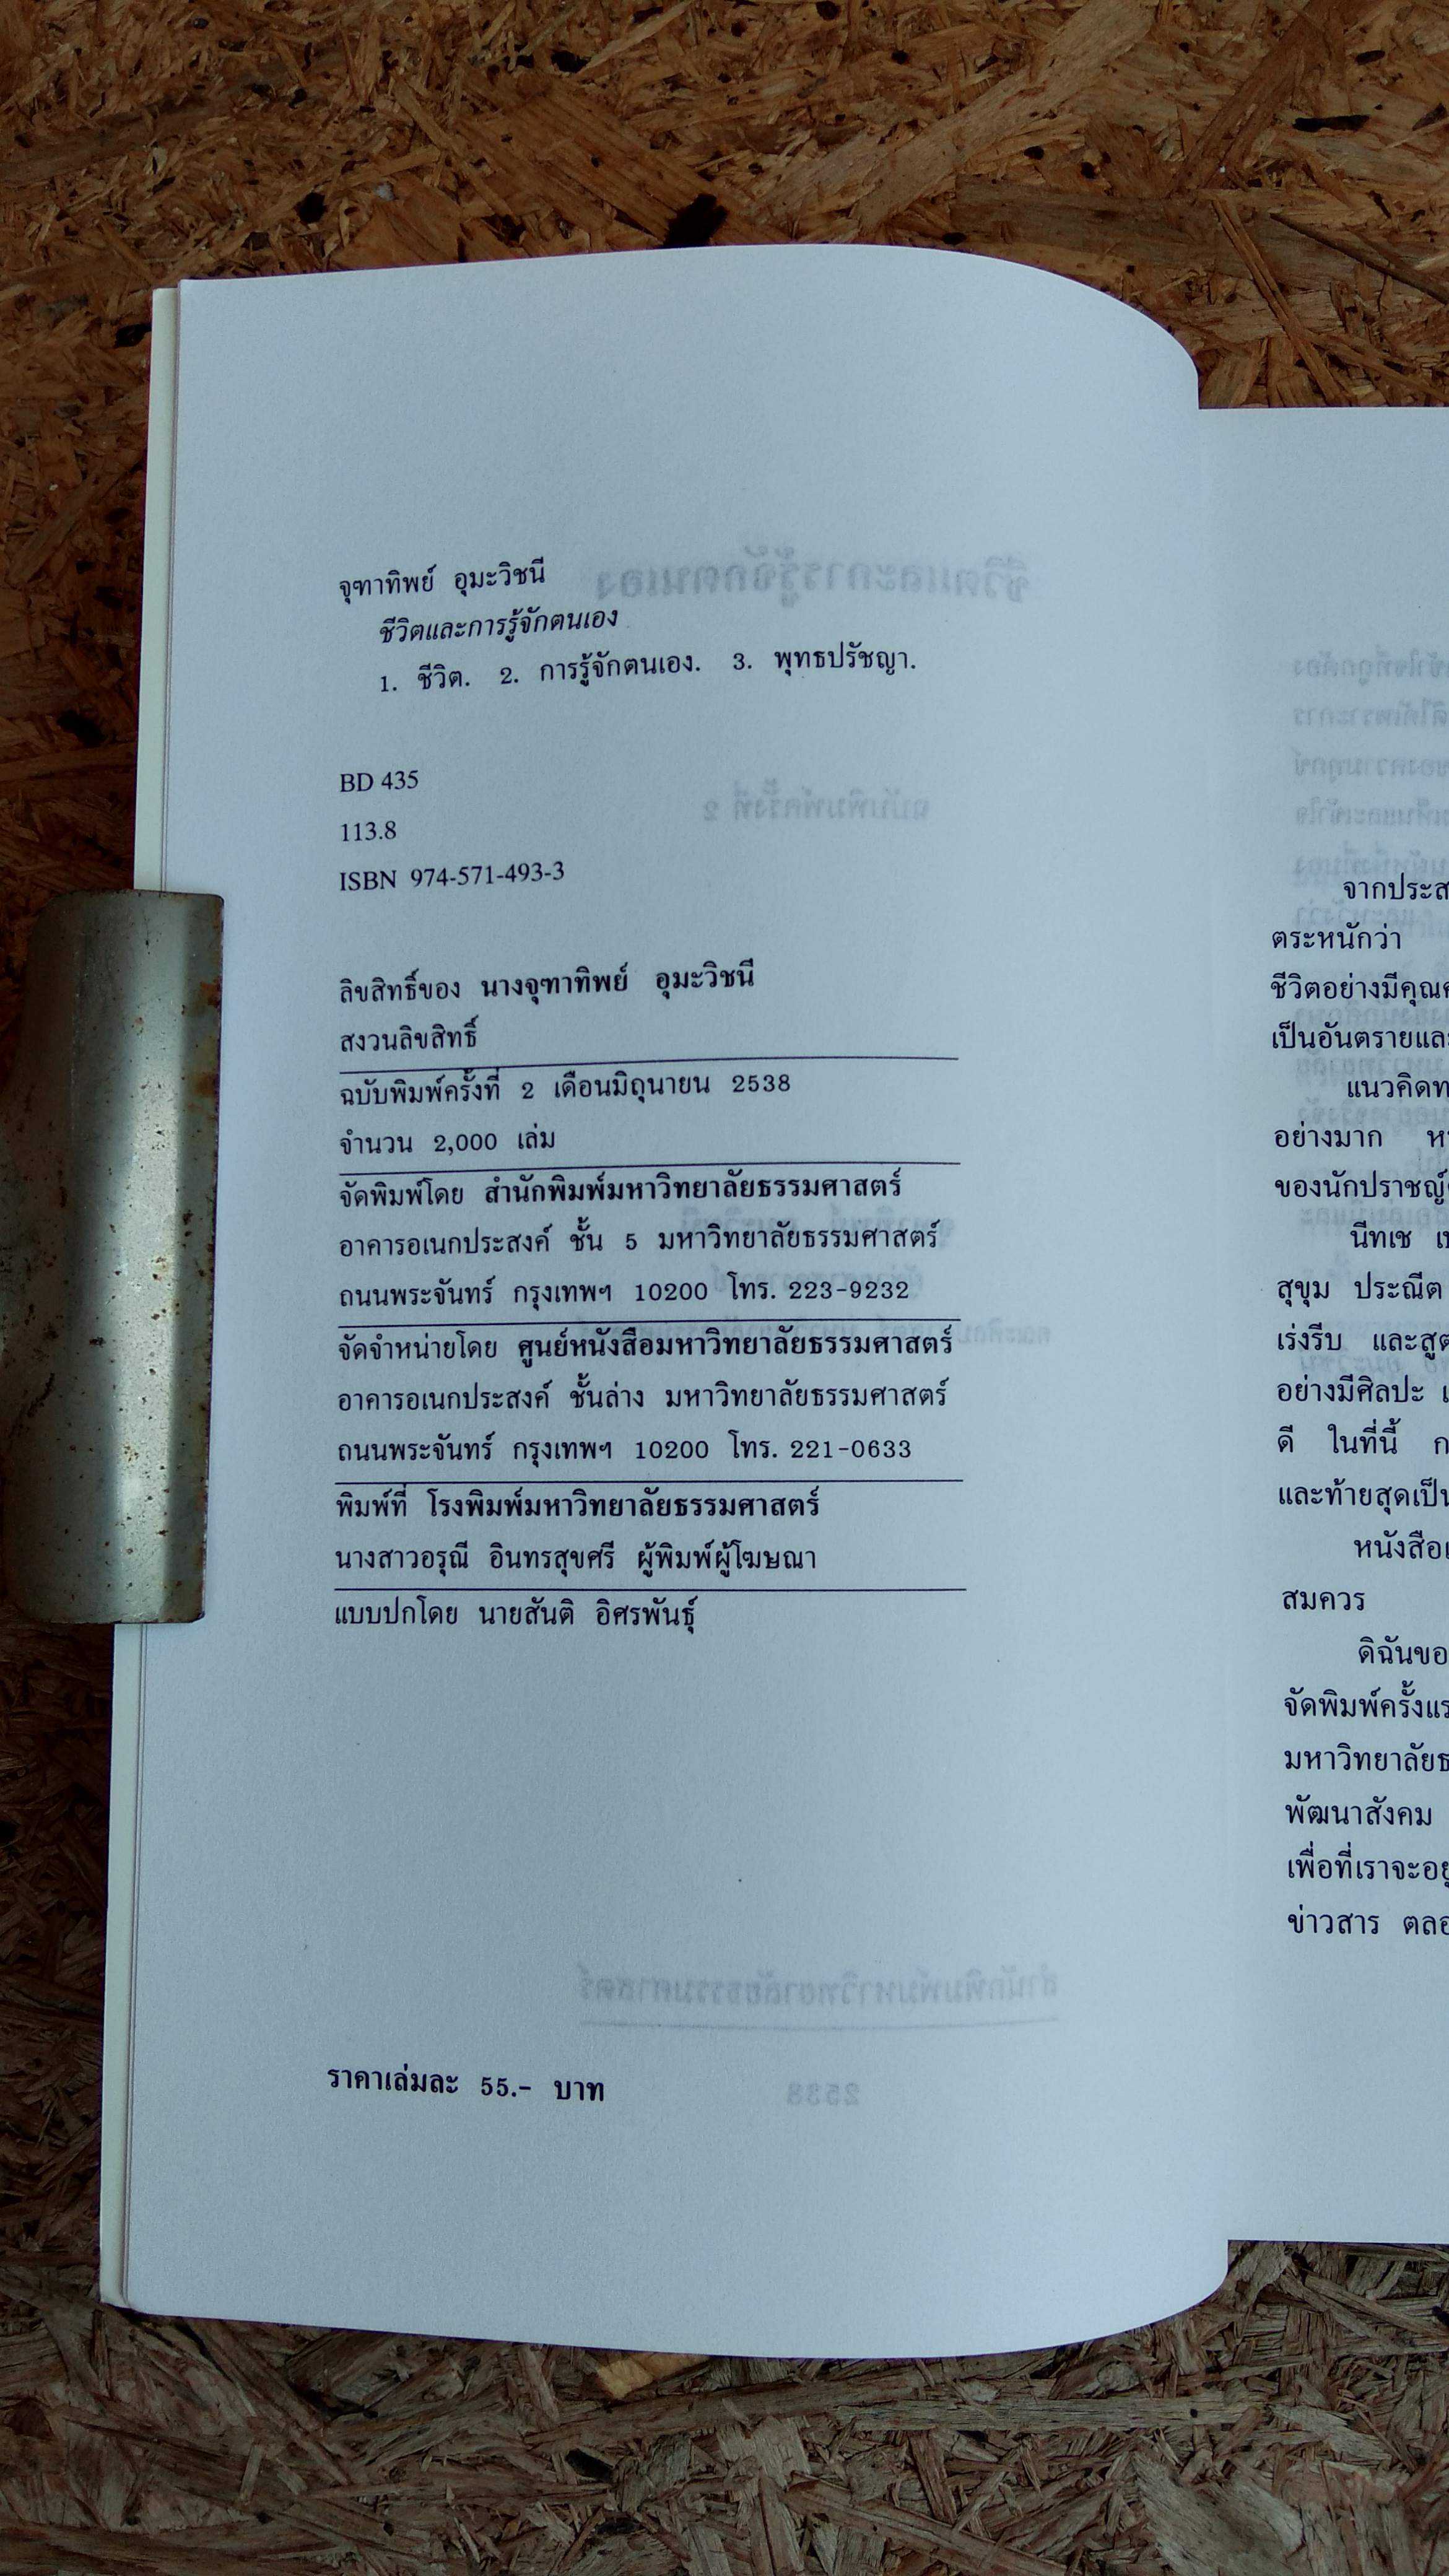 จุฑาทิพย์ อุมะวิชนี
ชีวิตและการรู้จักตนเอง
1. ชีวิต. 2. การรู้จักตนเอง. 3. พุทธปรัชญา.
BD 435
113.8
ISBN 974-571-493-3
ลิขสิทธิ์ของ นางจุฑาทิพย์ อุมะวิชนี
สงวนลิขสิทธิ์
ฉบับพิมพ์ครั้งที่ 2 เดือนมิถุนายน 2538
จำนวน 2,000 เล่ม
จัดพิมพ์โดย สำนักพิมพ์มหาวิทยาลัยธรรมศาสตร์
อาคารอเนกประสงค์ ชั้น 5 มหาวิทยาลัยธรรมศาสตร์
ถนนพระจันทร์ กรุงเทพฯ 10200 โทร. 223-9232
จัดจำหน่ายโดย ศูนย์หนังสือมหาวิทยาลัยธรรมศาสตร์
อาคารอเนกประสงค์ ชั้นล่าง มหาวิทยาลัยธรรมศาสตร์
ถนนพระจันทร์ กรุงเทพฯ 10200 โทร. 221-0633
พิมพ์ที่ โรงพิมพ์มหาวิทยาลัยธรรมศาสตร์
นางสาวอรุณี อินทรสุขศรี ผู้พิมพ์ผู้โฆษณา
แบบปกโดย นายสันติ อิศรพันธุ์
ราคาเล่มละ 55.- บาท
จากประส
ตระหนักว่า
ชีวิตอย่างมีคุณค
เป็นอันตรายและ
แนวคิดท
อย่างมาก
ของนักปราชญ์
นีทเช
สุขุม ประณีต
เร่งรีบ และสูต
อย่างมีศิลปะ เ
ดี ในที่นี้ ก
และท้ายสุดเป็น
หนังสือเ
สมควร
ดิฉันขอ
จัดพิมพ์ครั้งแร
มหาวิทยาลัยธ
พัฒนาสังคม
เพื่อที่เราจะอยู
ข่าวสาร ตลอ